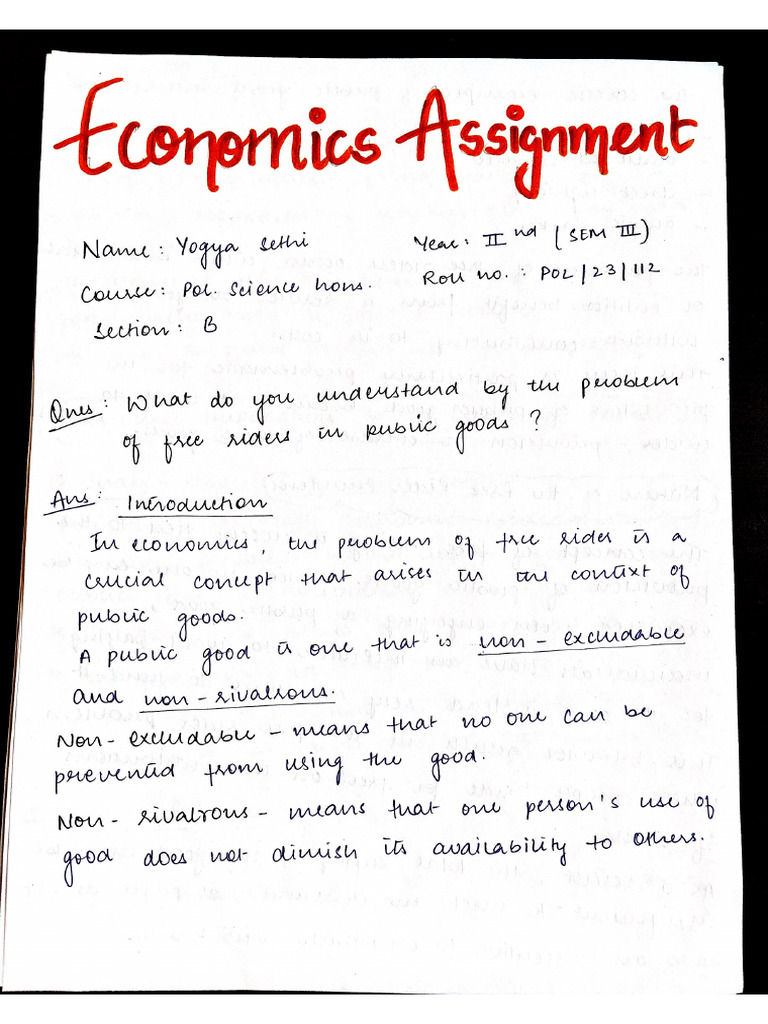 Economics Assignment
Name: Yogya Sethi Year: IInd (SEM III)
Course: Pol. Science hons. Roll no.: POL/23/112
Section: B
Ques: What do you understand by the problem
of free riders in public goods?
Ans: Introduction
In economics, the problem of free rider is a
crucial concept that arises in the context of
public goods.
A public good is one that is non-excludable
and non-rivalrous.
Non-excludable - means that no one can be
prevented from using the good.
Non-rivalrous - means that one person's use of
good does not dimish its availability to others.